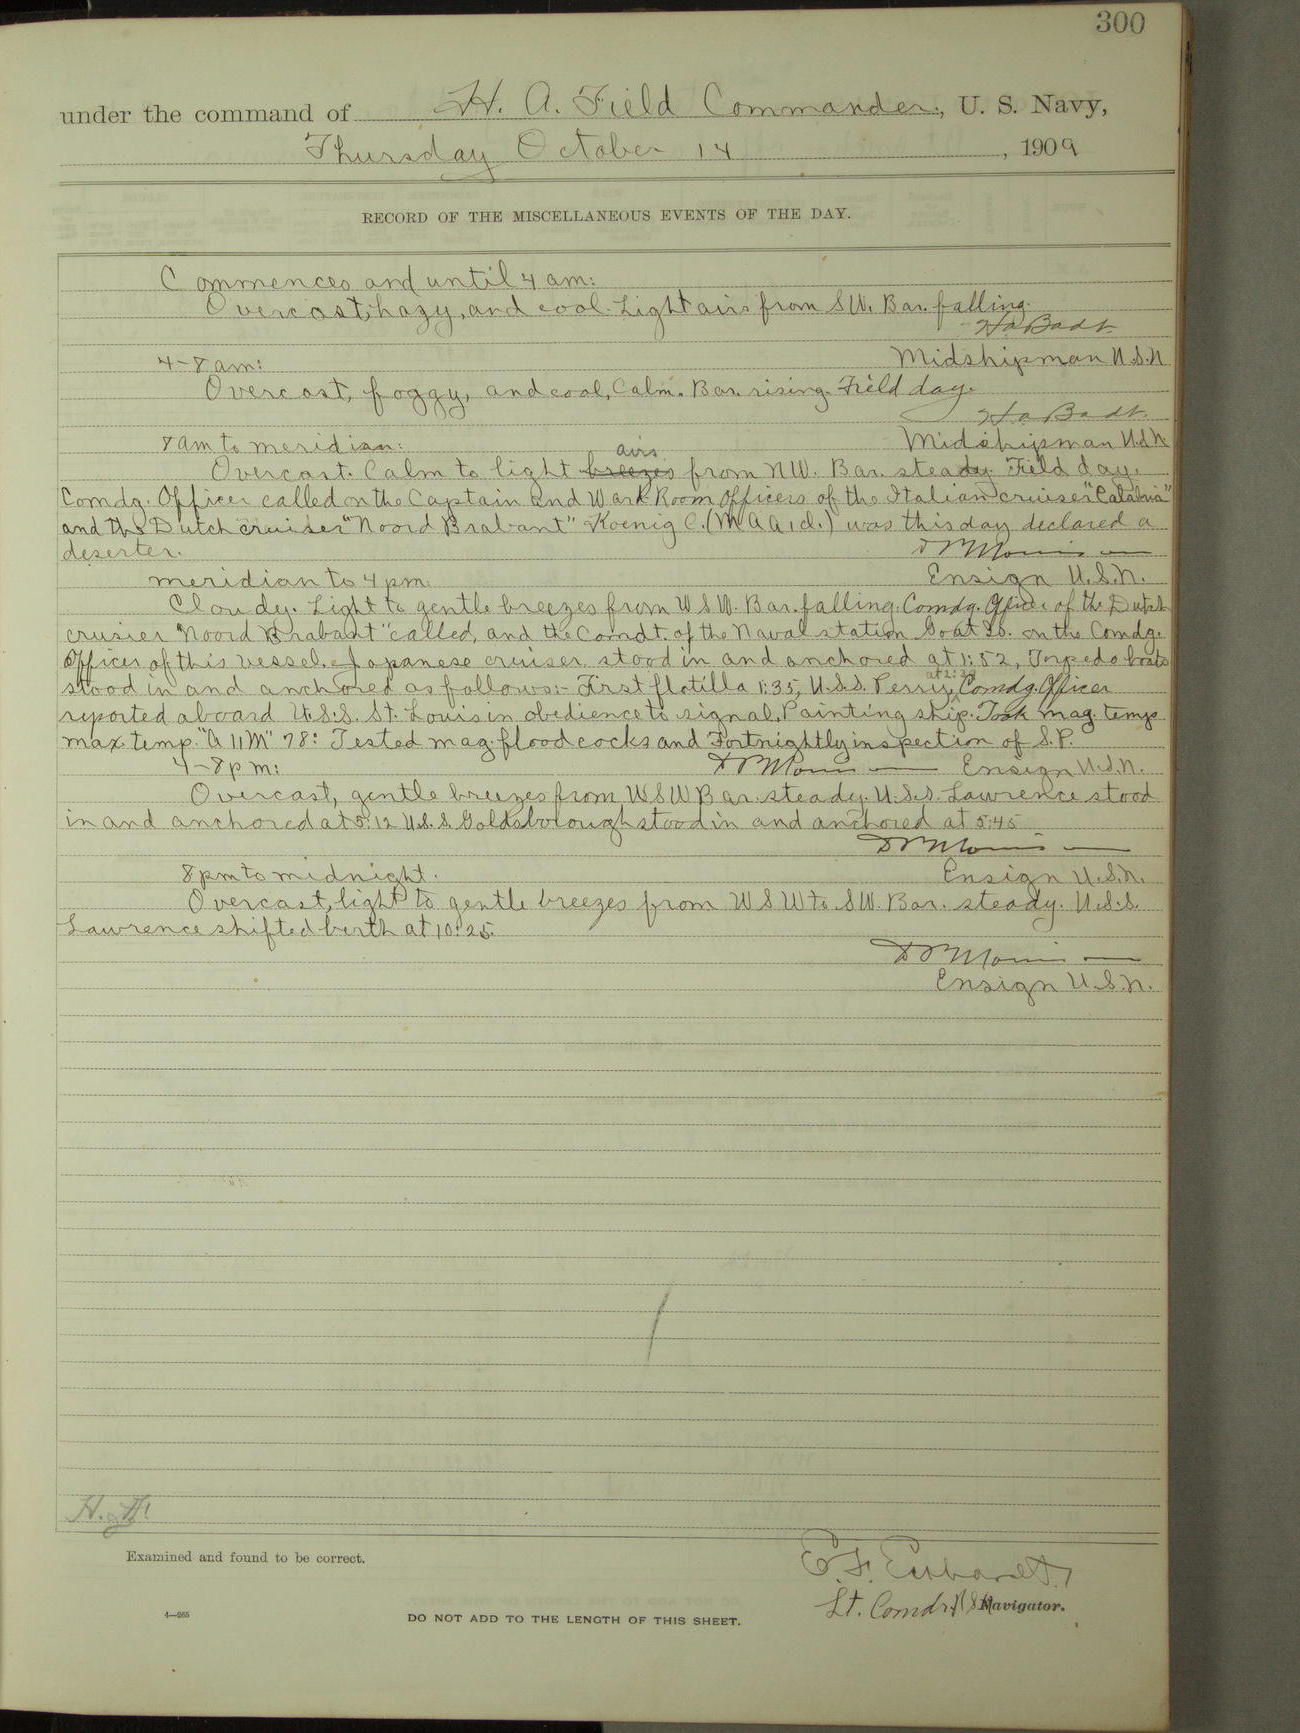 300
under the command of H. A. Field Commander, U. S. Navy,
Thursday October 14, 1909
RECORD OF THE MISCELLANEOUS EVENTS OF THE DAY.
Commences and until 4 am:
Overcast, hazy, and cool. Light airs from SW. Bar. falling.
H a Badt.
4-8 am: Midshipman U.S.N
Overcast, foggy, and cool, Calm. Bar. rising. Field day.
H a Badt.
8 am to meridian: Midshipman U.S.N.
airs
Overcast. Calm to light breezes from NW. Bar. steady. Field day.
Comdg. Officer called on the Captain and Ward Room Officers of the Italian cruiser "Calabria"
and the Dutch cruiser "Noord Brabant" Koenig C. (M A A 1 cl.) was this day declared a
deserter.
meridian to 4 pm. Ensign U.S.N.
Cloudy. Light to gentle breezes from WSW. Bar. falling. Comdg. Officer of the Dutch
crusier "Noord Brabant" called, and the Comdt. of the Naval station Goat Is. on the Comdg.
Officer of this vessel. Japanese cruiser stood in and anchored at 1:52, Torpedo boats
stood in and anchored as follows:- First flotilla 1:35, U.S.S. Perry, Comdg. Officer
reported aboard U.S.S. St. Louis in obedience to signal. Painting ship. Took mag. temps
max. temp. "A 11 M" 78° Tested mag. flood cocks and Fortnightly inspection of S.P.
4-8 pm: Ensign U.S.N.
Overcast, gentle breezes from WSW Bar. steady. U.S.S. Lawrence stood
in and anchored at 5:12 U.S.S. Goldsborough stood in and anchored at 5:45
8 pm to midnight. Ensign U.S.N.
Overcast, light to gentle breezes from WSW to SW. Bar. steady. U.S.S.
Lawrence shifted berth at 10:25.
Ensign U.S.N.
Examined and found to be correct.
Lt. Comdr. U S N Navigator.
4—265
DO NOT ADD TO THE LENGTH OF THIS SHEET.